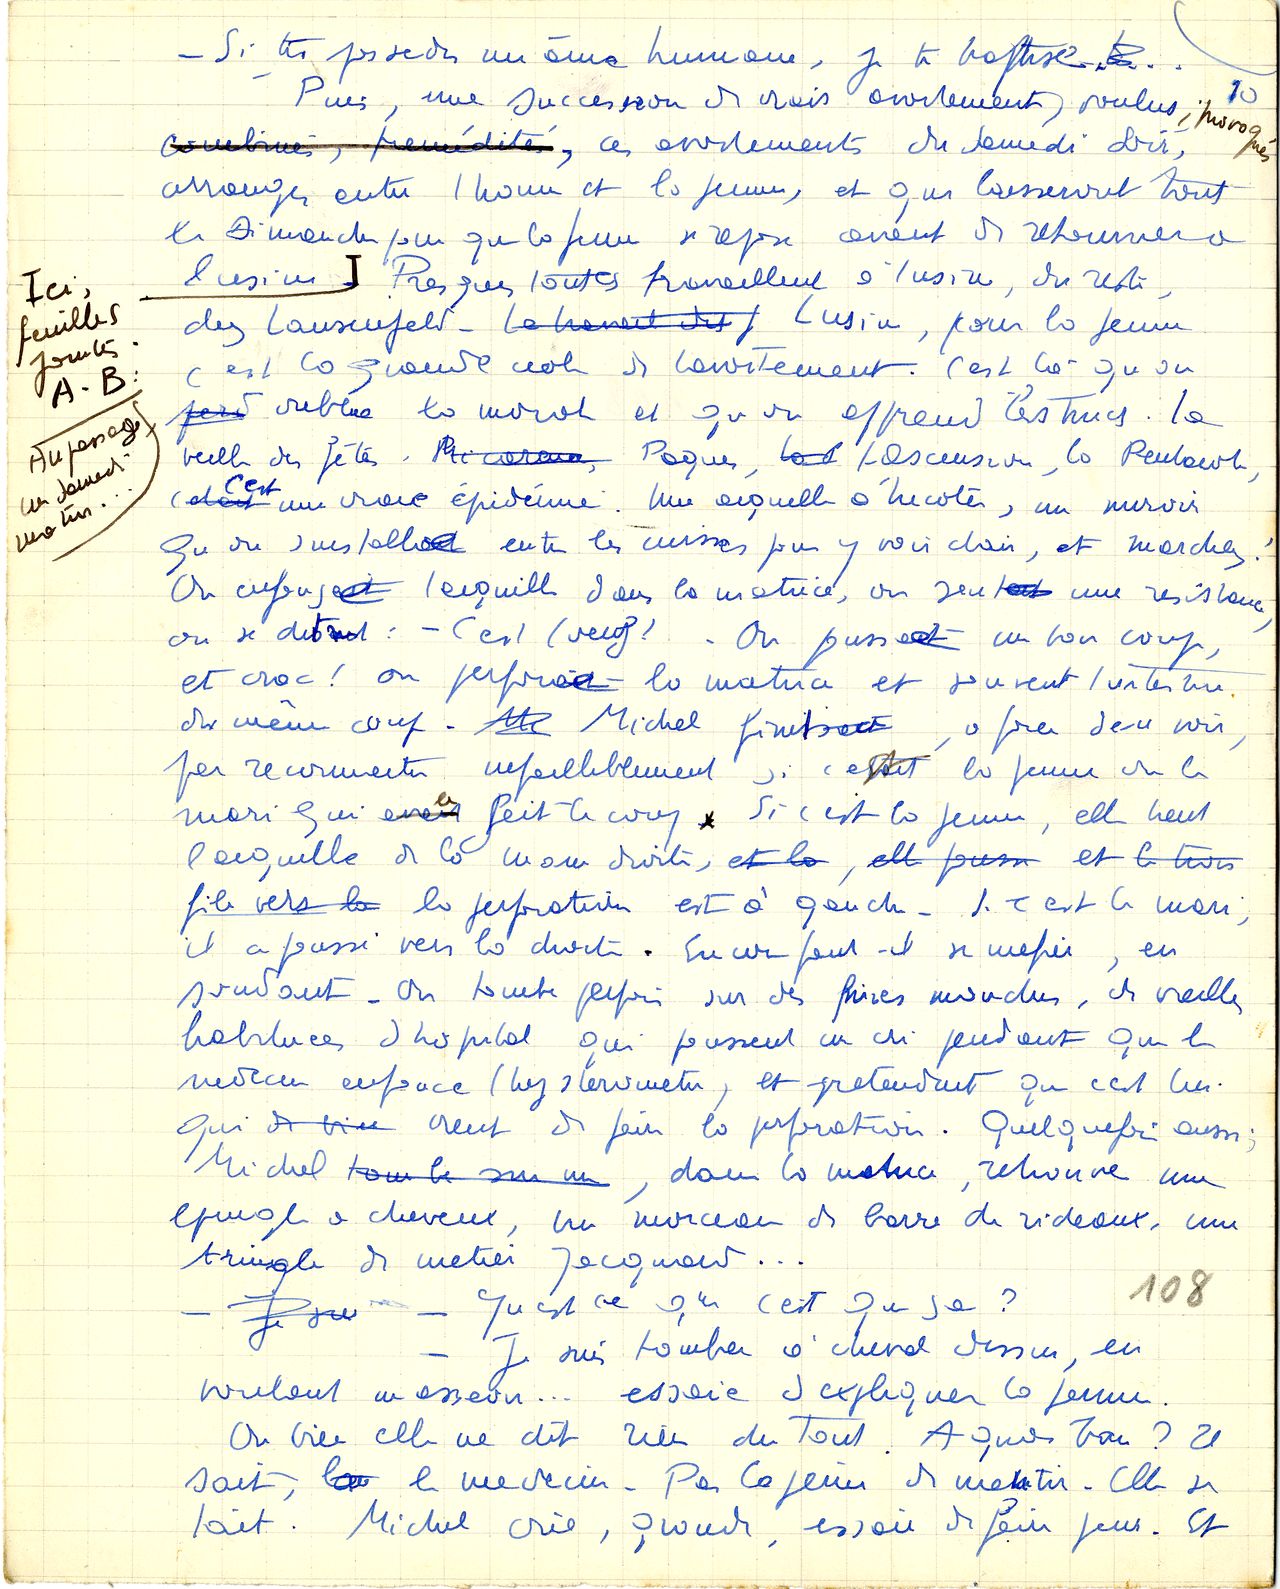 – Si tu possèdes une âme humaine, je te baptise...
10
Puis, une succession de vrais avortements, voulus, provoqués
combinés, prémédités, ces avortements du samedi soir,
arrangés entre l'homme et la femme, et qui laisseront tout
le Dimanche pour que la femme se repose avant de retourner à
l'usine ] Presque toutes travaillent à l'usine, du reste,
Ici,
feuilles
jointes
A-B:
chez Lausenfeld – L'usine, pour la femme
c'est la grande école de l'avortement. C'est là qu'on
perd oublie la morale et qu'on apprend les trucs. La
Au passage
un samedi
matin...
veille des fêtes. Mi-carême, Paques, l'Ascension, la Pentecôte,
c'est une vraie épidémie. Une aiguille à tricoter, un miroir
qu'on installe entre les cuisses pour y voir clair, et marchez!
On enfonce l'aiguille dans la matrice, on sent une résistance,
on se dit : – C'est l'oeuf! – On pousse un bon coup,
et crac! on perfore la matrice et souvent l'intestin
du même coup – Michel finit, à force d'en voir,
par reconnaître infailliblement si c'est la femme ou le
mari qui a fait le coup. Si c'est la femme, elle tient
l'aiguille de la main droite, et la, elle pousse et le trou
file vers la la perforation est à gauche – Si c'est le mari,
il a poussé vers la droite. Encore faut-il se méfier, en
sondant – On tombe parfois sur des fines mouches, de vieilles
habituées d'hôpital qui poussent un cri pendant que le
médecin enfonce l'hystéromètre, et prétendent que c'est lui
qui vient de faire la perforation. Quelquefois aussi,
Michel tombe sur un, dans la matrice, retrouve une
épingle à cheveux, un morceau de barre de rideaux, une
tringle de métier Jacquard...
– Je suis – Qu'est ce que c'est que ça ?
108
– Je suis tombée à cheval dessus, en
voulant m'asseoir... essaie d'expliquer la femme.
Ou bien elle ne dit rien du tout. A quoi bon ? Il
sait, le médecin – Pas la peine de mentir – Elle se
tait. Michel crie, gronde, essaie de faire peur. Et